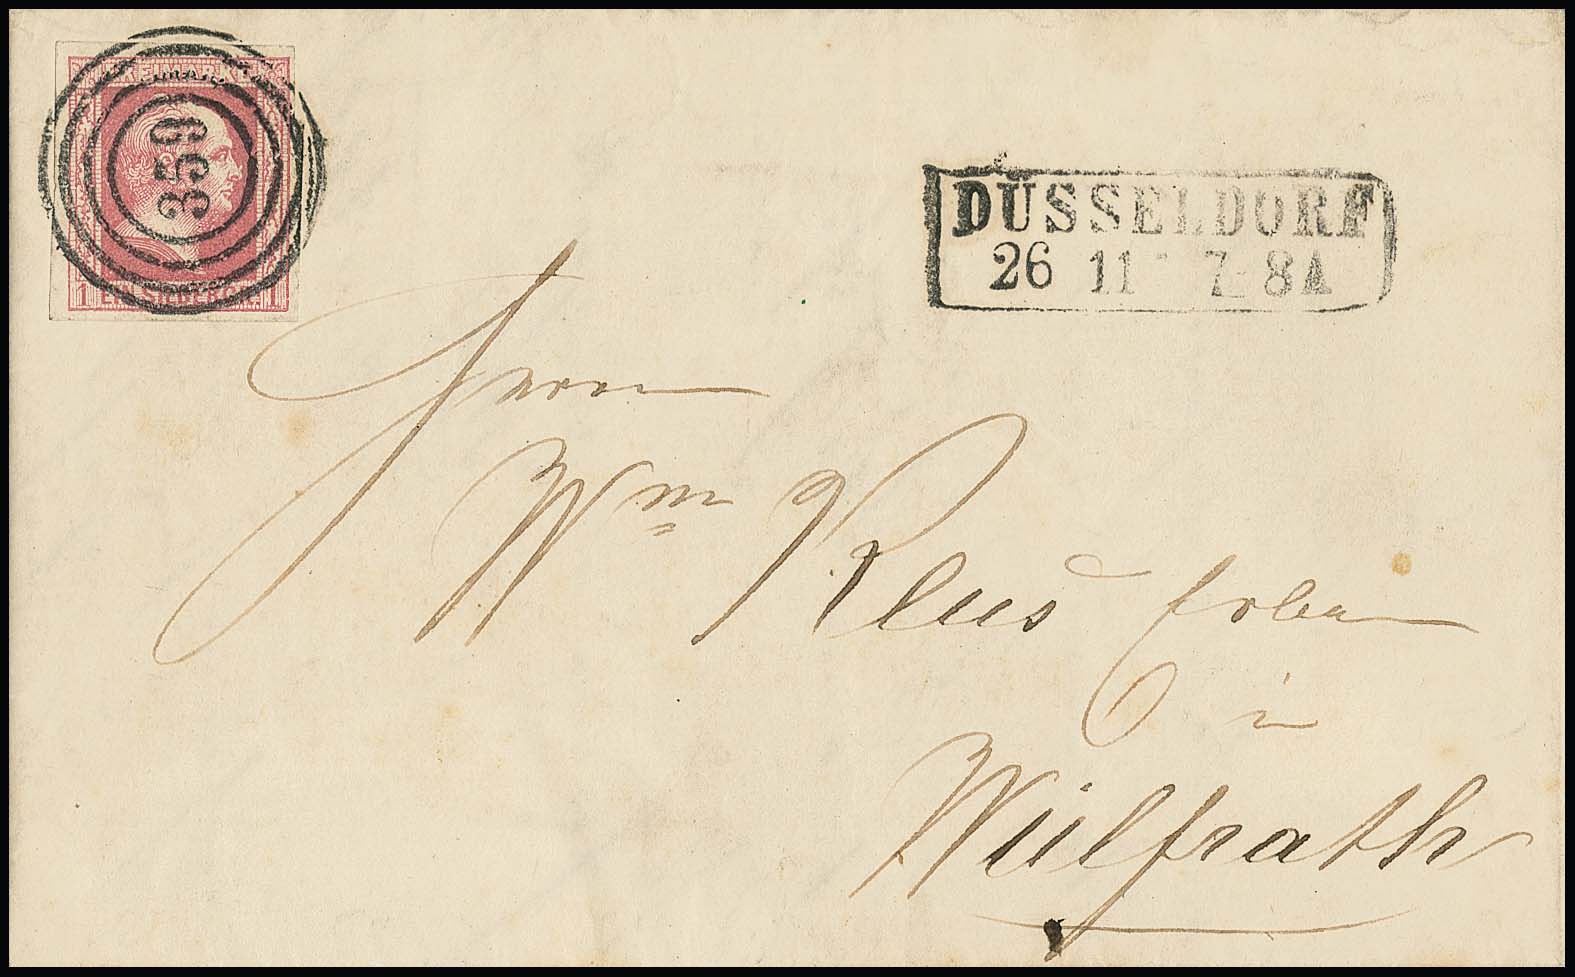 FREIMARKE
359
1 EIN SILBERGR. 1
DÜSSELDORF
26 11 7-8A
Herrn
Wm Kleus Erben
in
Wülfrath